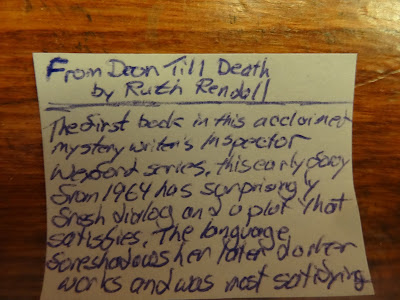 From Doon Till Death
by Ruth Rendell
The first book in this acclaimed
mystery writer's Inspector
Wexford series, this early foray
from 1964 has surprisingly
fresh dialog and a plot that
satisfies. The language
foreshadows her later darker
works and was most satisfying